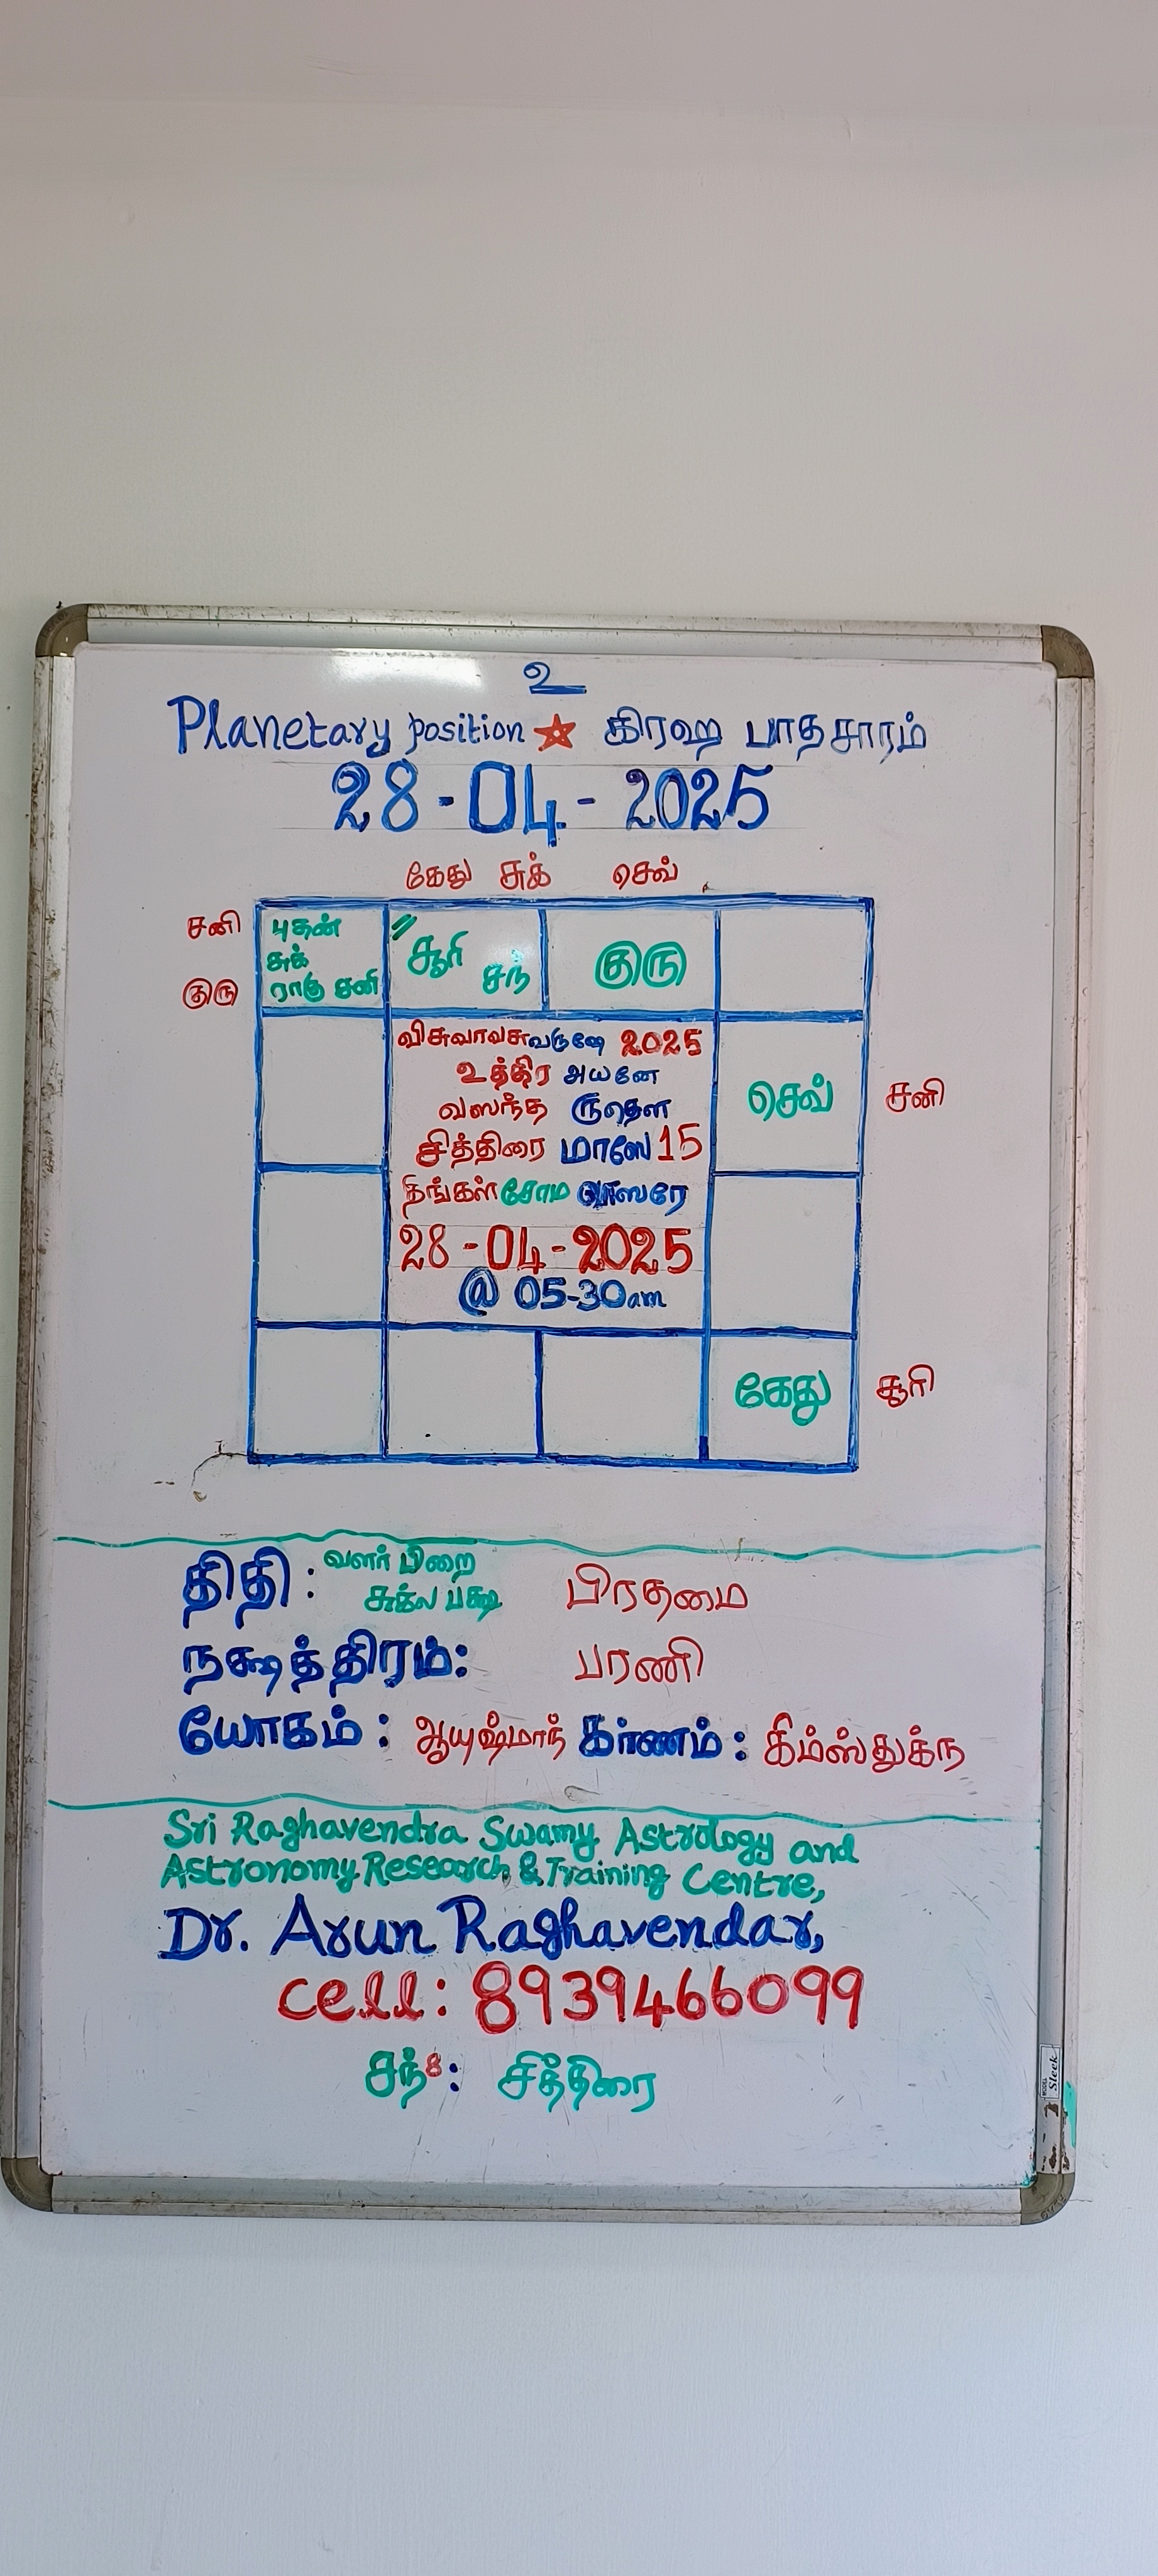 உ
Planetary position கிரஹ பாதசாரம்
28-04-2025
கேது சுக் செவ்
சனி
குரு
புதன்
சுக்
ராகு சனி
சூரி சந்
குரு
விசுவாவசுவருஷே 2025
உத்திர அயனே
வஸந்த ருதௌ
சித்திரை மாஸே 15
திங்கள் சோம வாஸரே
28-04-2025
@ 05-30am
செவ் சனி
கேது சூரி
திதி : வளர் பிறை
சுக்ல பக்ஷ பிரதமை
நக்ஷத்திரம்: பரணி
யோகம் : ஆயுஷ்மாந் கரணம் : கிம்ஸ்துக்ந
Sri Raghavendra Swamy Astrology and
Astronomy Research & Training Centre,
Dr. Arun Raghavendar,
cell: 8939466099
சந்8: சித்திரை
Sleek